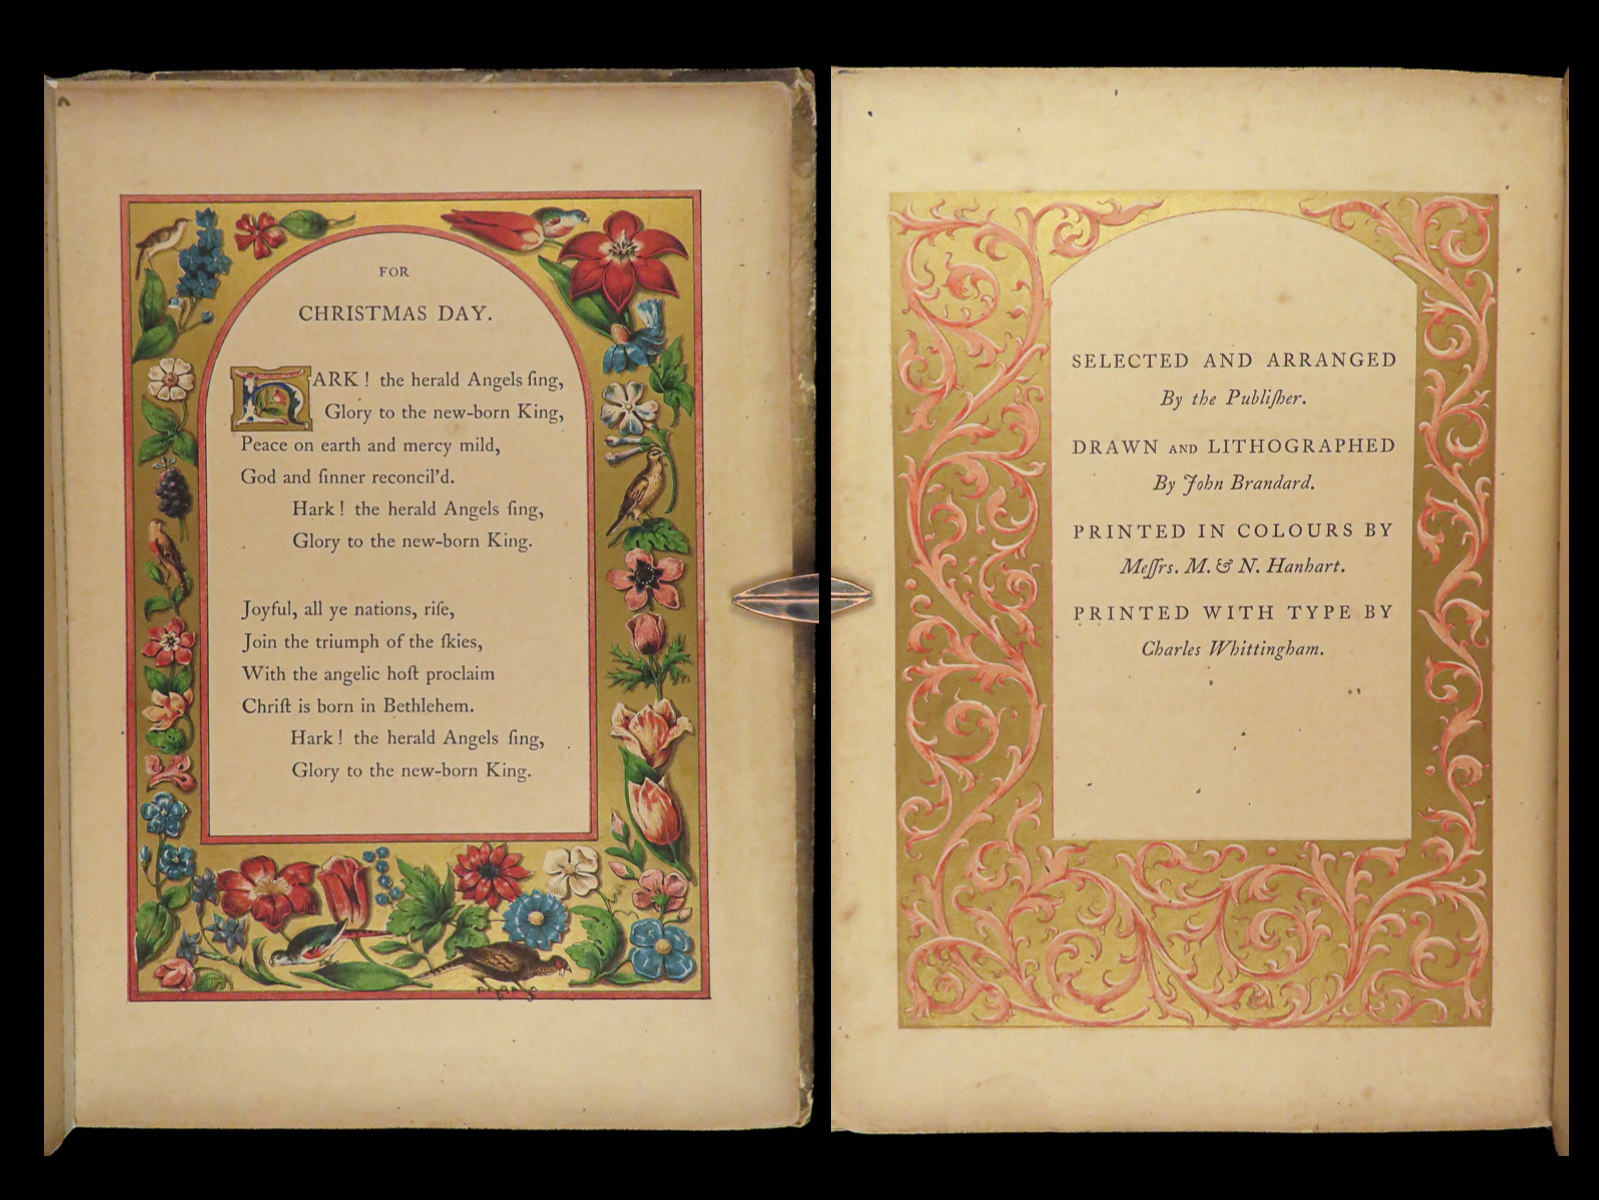 FOR
CHRISTMAS DAY.
HARK! the herald Angels ſing,
Glory to the new-born King,
Peace on earth and mercy mild,
God and ſinner reconcil’d.
Hark! the herald Angels ſing,
Glory to the new-born King.
Joyful, all ye nations, riſe,
Join the triumph of the ſkies,
With the angelic hoſt proclaim
Chriſt is born in Bethlehem.
Hark! the herald Angels ſing,
Glory to the new-born King.
SELECTED AND ARRANGED
By the Publiſher.
DRAWN AND LITHOGRAPHED
By John Brandard.
PRINTED IN COLOURS BY
Meſſrs. M. & N. Hanhart.
PRINTED WITH TYPE BY
Charles Whittingham.